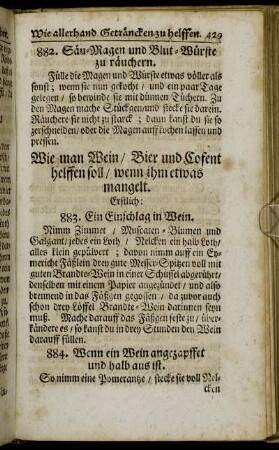 Wie allerhand Geträncken zu helffen. 429
882. Säu-Magen und Blut-Würste
zu räuchern.
Fülle die Magen und Würste etwas völler als
sonst; wenn sie nun gekocht / und ein paar Tage
gelegen / so bewinde sie mit dünnen Tüchern. Zu
den Magen mache Stücken / und stecke sie darein.
Räuchere sie nicht zu starck; dann kanst du sie so
zerschneiden / oder die Magen auffkochen lassen und
pressen.
Wie man Wein / Bier und Cofent
helffen soll / wenn ihm etwas
mangelt.
Erstlich:
883. Ein Einschlag in Wein.
Nimm Zimmet / Muscaten-Blumen und
Galgant / jedes ein Loth / Nelcken ein halb Loth /
alles klein gepülvert; davon nimm auff ein Ey-
mericht Fäßlein drey gute Messer-Spitzen voll mit
guten Brandte-Wein in einer Schüssel abgerührt /
denselben mit einem Papier angezündet / und also
brennend in das Fäßgen gegossen / da zuvor auch
schon drey Löffel Brandte-Wein darinnen seyn
muß. Mache darauff das Fäßgen feste zu / über-
kändere es / so kanst du in drey Stunden den Wein
darauff füllen.
884. Wenn ein Wein angezapffet
und halb aus ist.
So nimm eine Pomerantze / stecke sie voll Nel-
cken